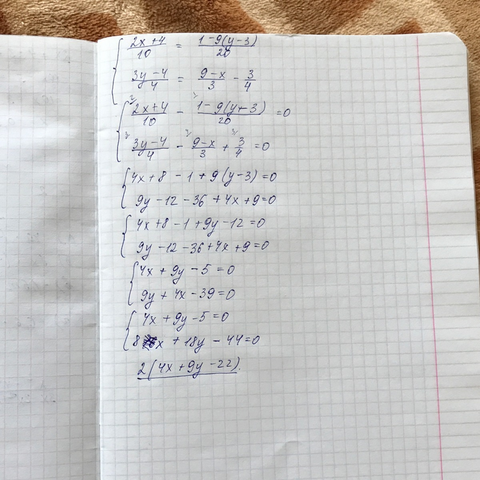 { (2x+4)/10 = (1-9(y-3))/20
(3y-4)/4 = (9-x)/3 - 3/4
{ (2x+4)/10 - (1-9(y-3))/20 = 0
(3y-4)/4 - (9-x)/3 + 3/4 = 0
{ 4x+8-1+9(y-3)=0
9y-12-36+4x+9=0
{ 4x+8-1+9y-12=0
9y-12-36+4x+9=0
{ 4x+9y-5=0
9y+4x-39=0
{ 4x+9y-5=0
8x+18y-44=0
2(4x+9y-22)